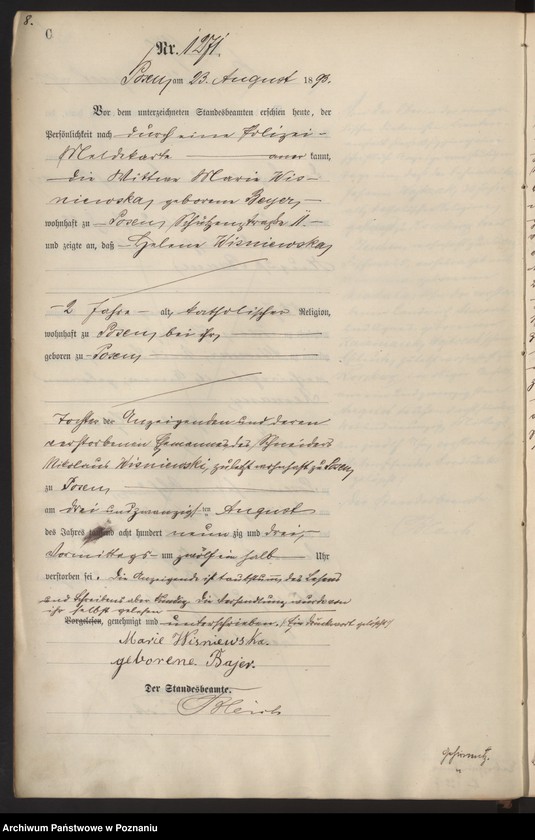 8.
C
Nr. 1271.
Posen, am 23. August 1893.
Vor dem unterzeichneten Standesbeamten erschien heute, der
Persönlichkeit nach durch eine Polizei-
Meldekarte anerkannt,
die Wittwe Marie Wis-
niewska, geborene Beyer,
wohnhaft zu Posen, Schützenstraße 11
und zeigte an, daß Helene Wisniewska,
2 Jahre alt, katholischer Religion,
wohnhaft zu Posen, bei ihr,
geboren zu Posen,
Tochter der Anzeigenden und deren
verstorbenen Ehemannes des Schneiders
Nikolaus Wisniewski, zuletzt wohnhaft zu Posen,
zu Posen,
am drei und zwanzigsten August
des Jahres tausend acht hundert neunzig und drei,
Vormittags um zwölf ein halb Uhr
verstorben sei. Die Anzeigende ist taubstumm, des Lesens
und Schreibens aber kundig. Die Verhandlung wurde von
ihr selbst gelesen
Vorgelesen, genehmigt und unterschrieben. (Ein Druckwort gelöscht)
Marie Wisniewska.
geborene Bajer.
Der Standesbeamte.
Archiwum Państwowe w Poznaniu